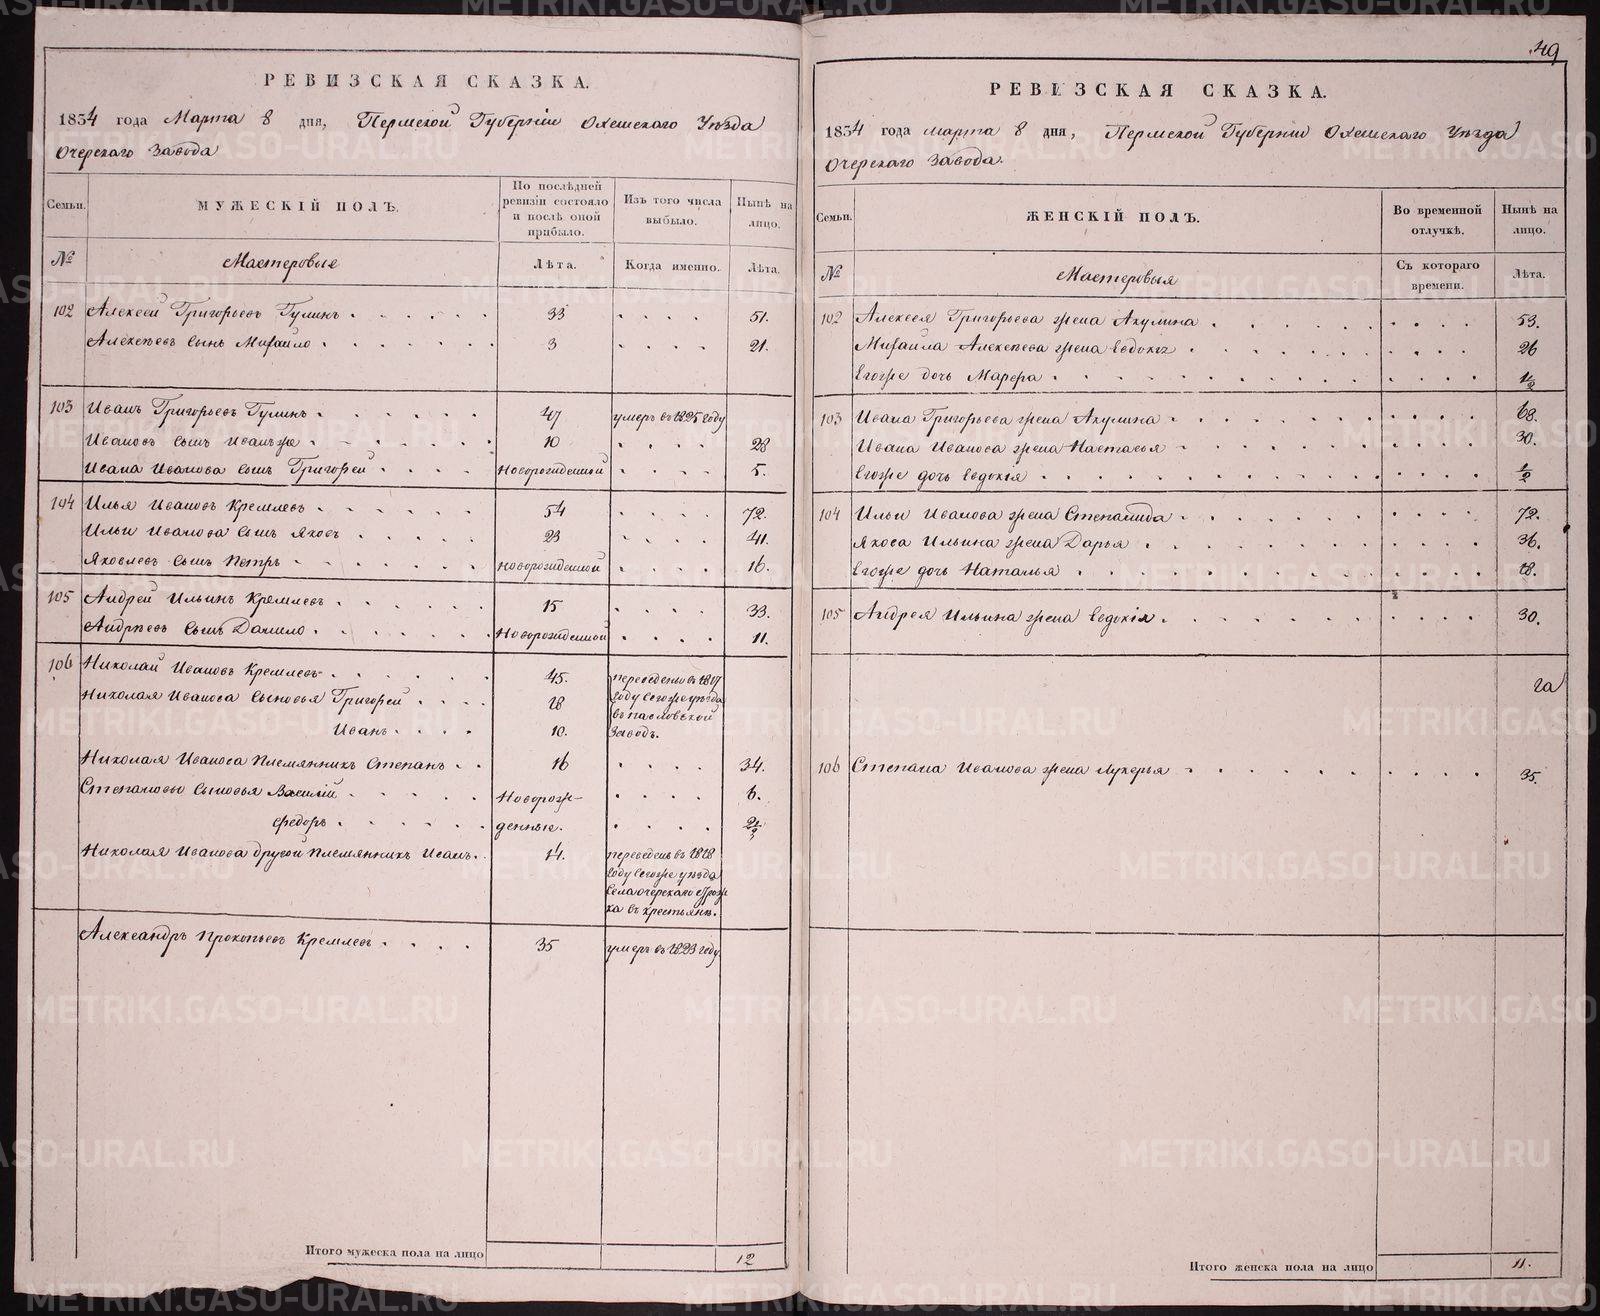 49
РЕВИЗСКАЯ СКАЗКА.
1834 года Марта 8 дня, Пермской Губернии Оханскаго Уѣзда
Очерскаго Завода
Семьи.
МУЖЕСКІЙ ПОЛЪ.
По послѣдней ревизіи состояло и послѣ оной прибыло.
Изъ того числа выбыло.
Нынѣ на лицо.
№
Мастеровые
Лѣта.
Когда именно.
Лѣта.
102 Алексей Григорьевъ Гулинъ 33 51.
Алексѣевъ сынъ Михайло 3 21.
103 Иванъ Григорьевъ Гулинъ 47 умеръ въ 1825 году
Ивановъ сынъ Иванъ же 10 28
Ивана Иванова сынъ Григорей Новорожденной 5.
104 Илья Ивановъ Кремлевъ 54 72.
Ильи Иванова сынъ Яковъ 23 41.
Яковлевъ сынъ Петръ новорожденной 16.
105 Андрей Ильинъ Кремлевъ 15 33.
Андрѣевъ сынъ Данило Новорожденной 11.
106 Николай Ивановъ Кремлевъ 45. переведены в 1817
Николая Иванова сыновья Григорей 18 году сегоже уѣзда
Иванъ 10. въ павловской завод.
Николая Иванова племянникъ Степанъ 16 34.
Степановы сыновья Василій Новорож- 6.
Федоръ денные. 2/3
Николая Иванова другой племянникъ Иванъ 14. переведенъ в 1818
году сегоже уѣзда
села очерскаго острож
ка въ крестьяне.
Александръ Прокопьевъ Кремлевъ 35 умеръ въ 1823 году
Итого мужеска пола на лицо 12
РЕВИЗСКАЯ СКАЗКА.
1834 года марта 8 дня, Пермской Губернии Оханскаго Уѣзда
Очерскаго Завода.
Семьи.
ЖЕНСКІЙ ПОЛЪ.
Во временной отлучкѣ.
Нынѣ на лицо.
№
Мастеровыя
Съ котораго времени.
Лѣта.
102 Алексея Григорьева жена Акулина 53.
Михаила Алексѣева жена Евдокія 26
Егоже дочь Марфа 1/2
103 Ивана Григорьева жена Акулина 68.
Ивана Иванова жена Настасья 30.
Егоже дочь Евдокія 1/2
104 Ильи Иванова жена Степанида 72.
Якова Ильина жена Дарья 36.
Егоже дочь Наталья 18.
105 Андрея Ильина жена Евдокія 30.
га
106 Степана Иванова жена Лукерья 35.
Итого женска пола на лицо 11.
METRIKI.GASO-URAL.RU